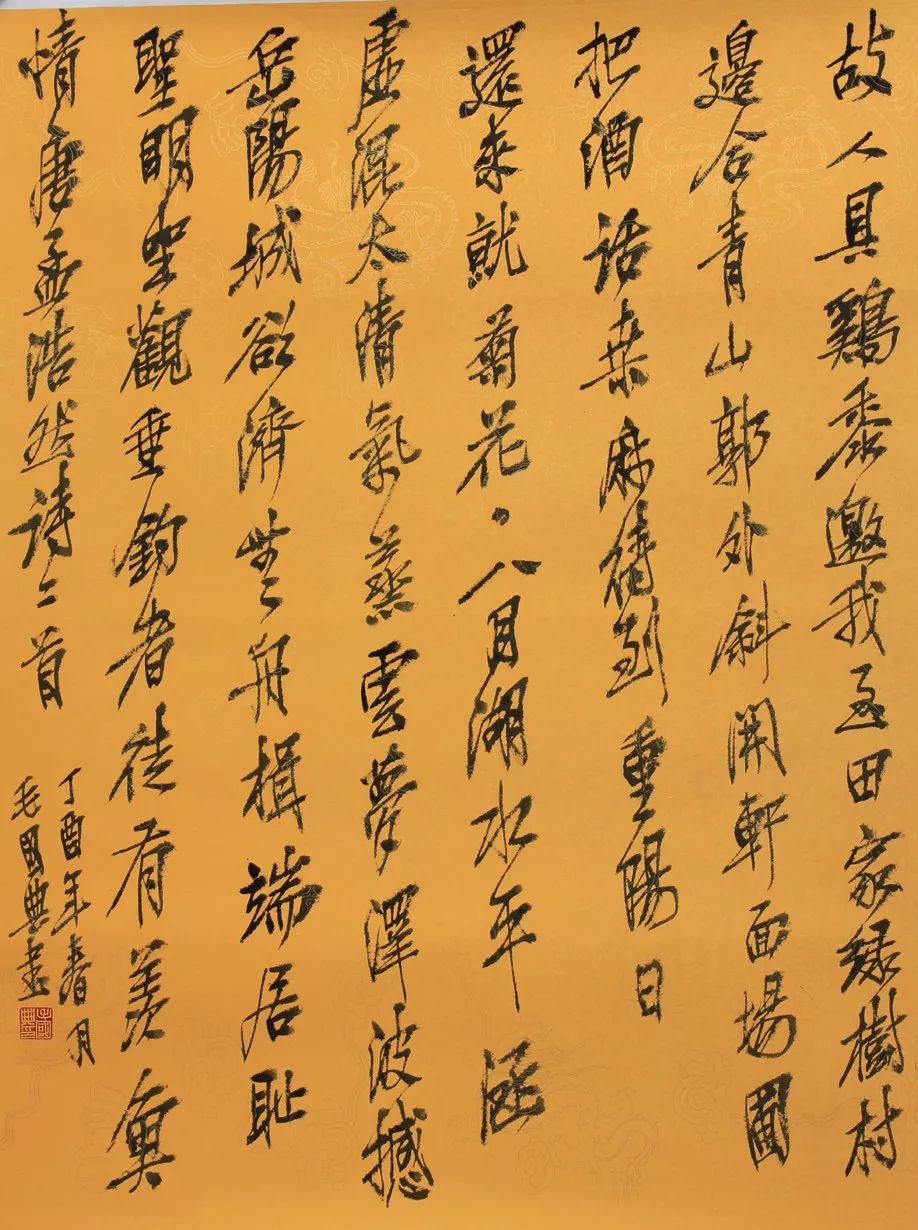 故人具鷄黍邀我至田家綠樹村
邊合青山郭外斜開軒面場圃
把酒話桑麻待到重陽日
還來就菊花、八月湖水平涵
虛混太清氣蒸雲夢澤波撼
岳陽城欲濟無舟楫端居恥
聖明坐觀垂釣者徒有羨魚
情唐孟浩然詩二首
丁酉年春月
毛國典書